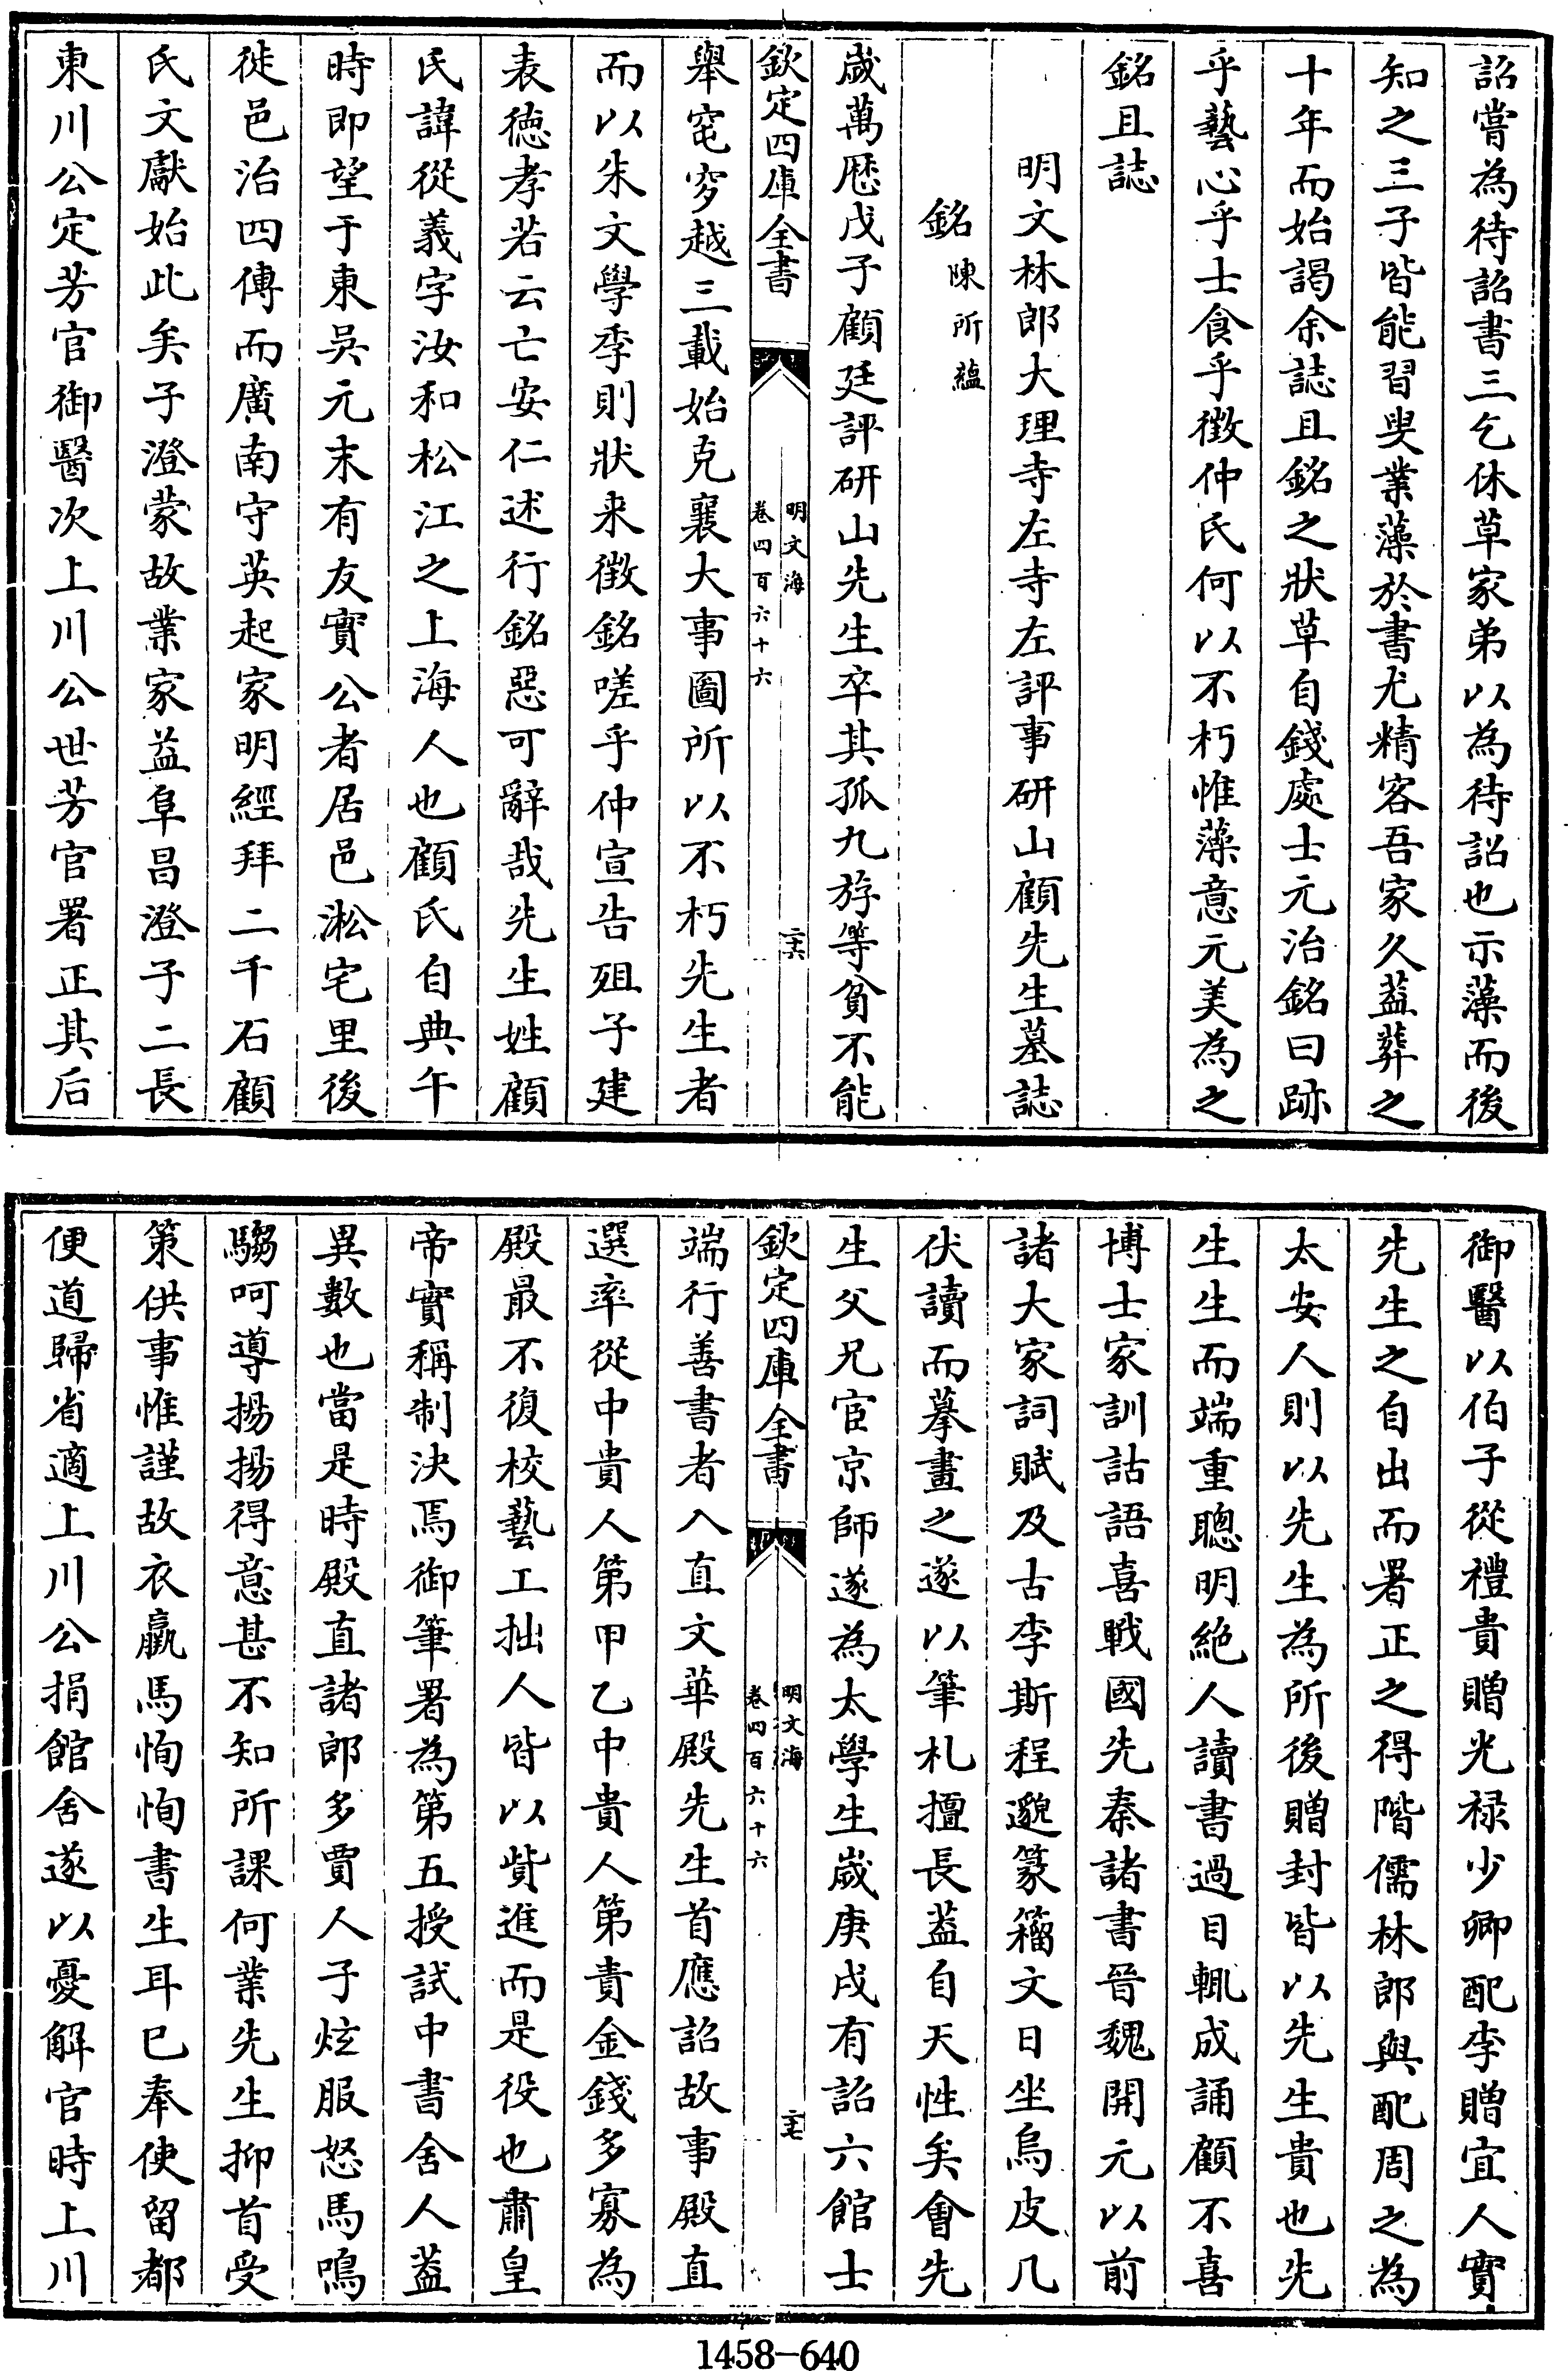 詔嘗為待詔書三乞休草家弟以為待詔也示藻而後
知之三子皆能習叟業藻於書尤精客吾家久葢葬之
十年而始謁余誌且銘之狀草自錢處士元治銘曰跡
乎藝心乎士食乎徵仲氏何以不朽惟藻意元美為之
銘且誌
明文林郎大理寺左寺左評事研山顧先生墓誌
銘 陳所蘊
歲萬厯戊子顧廷評研山先生卒其孤九斿等貧不能
欽定四庫全書
明文海
卷四百六十六
二十六
舉窀穸越三載始克襄大事圖所以不朽先生者
而以朱文學季則狀来徴銘嗟乎仲宣告殂子建
表徳孝若云亡安仁述行銘惡可辭哉先生姓顧
氏諱從義字汝和松江之上海人也顧氏自典午
時即望于東吳元末有友實公者居邑淞宅里後
徙邑治四傳而廣南守英起家明經拜二千石顧
氏文獻始此矣子澄蒙故業家益阜昌澄子二長
東川公定芳官御醫次上川公世芳官署正其后
御醫以伯子從禮貴贈光祿少卿配李贈宜人實
先生之自出而署正之得階儒林郎與配周之為
太安人則以先生為所後贈封皆以先生貴也先
生生而端重聰明絶人讀書過目輒成誦顧不喜
博士家訓詁語喜戰國先秦諸書晉魏開元以前
諸大家詞賦及古李斯程邈篆籀文日坐烏皮几
伏讀而摹畫之遂以筆札擅長葢自天性矣會先
生父兄宦京師遂為太學生歲庚戌有詔六館士
欽定四庫全書
明文海
卷四百六十六
二十七
端行善書者入直文華殿先生首應詔故事殿直
選率從中貴人第甲乙中貴人第貴金錢多寡為
殿最不復校藝工拙人皆以貲進而是役也肅皇
帝實稱制決焉御筆署為第五授試中書舍人葢
異數也當是時殿直諸郎多賈人子炫服怒馬鳴
騶呵導揚揚得意甚不知所課何業先生抑首受
策供事惟謹故衣羸馬恂恂書生耳已奉使留都
便道歸省適上川公捐館舍遂以憂解官時上川
1458-640